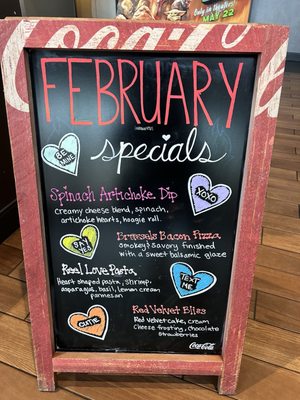 Only in Theaters
MAY 22
Coca-Cola
FEBRUARY
specials
BE MINE
Spinach Artichoke Dip
Creamy cheese blend, spinach,
artichoke hearts, hoagie roll
XOXO
SAY YES
Brussels Bacon Pizza
Smokey & Savory finished
with a sweet balsamic glaze
Reel Love Pasta
Heart shaped pasta, shrimp,
asparagus, basil, lemon cream
parmesan
TEXT ME
CUTIE
Red Velvet Bliss
Red velvet cake, cream
Cheese frosting, chocolate
strawberries
Coca-Cola